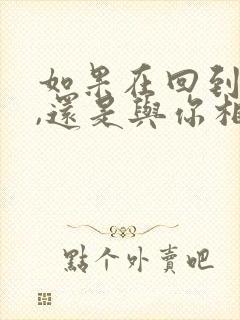 如果在回到
,還是與你相
點个外賣吧